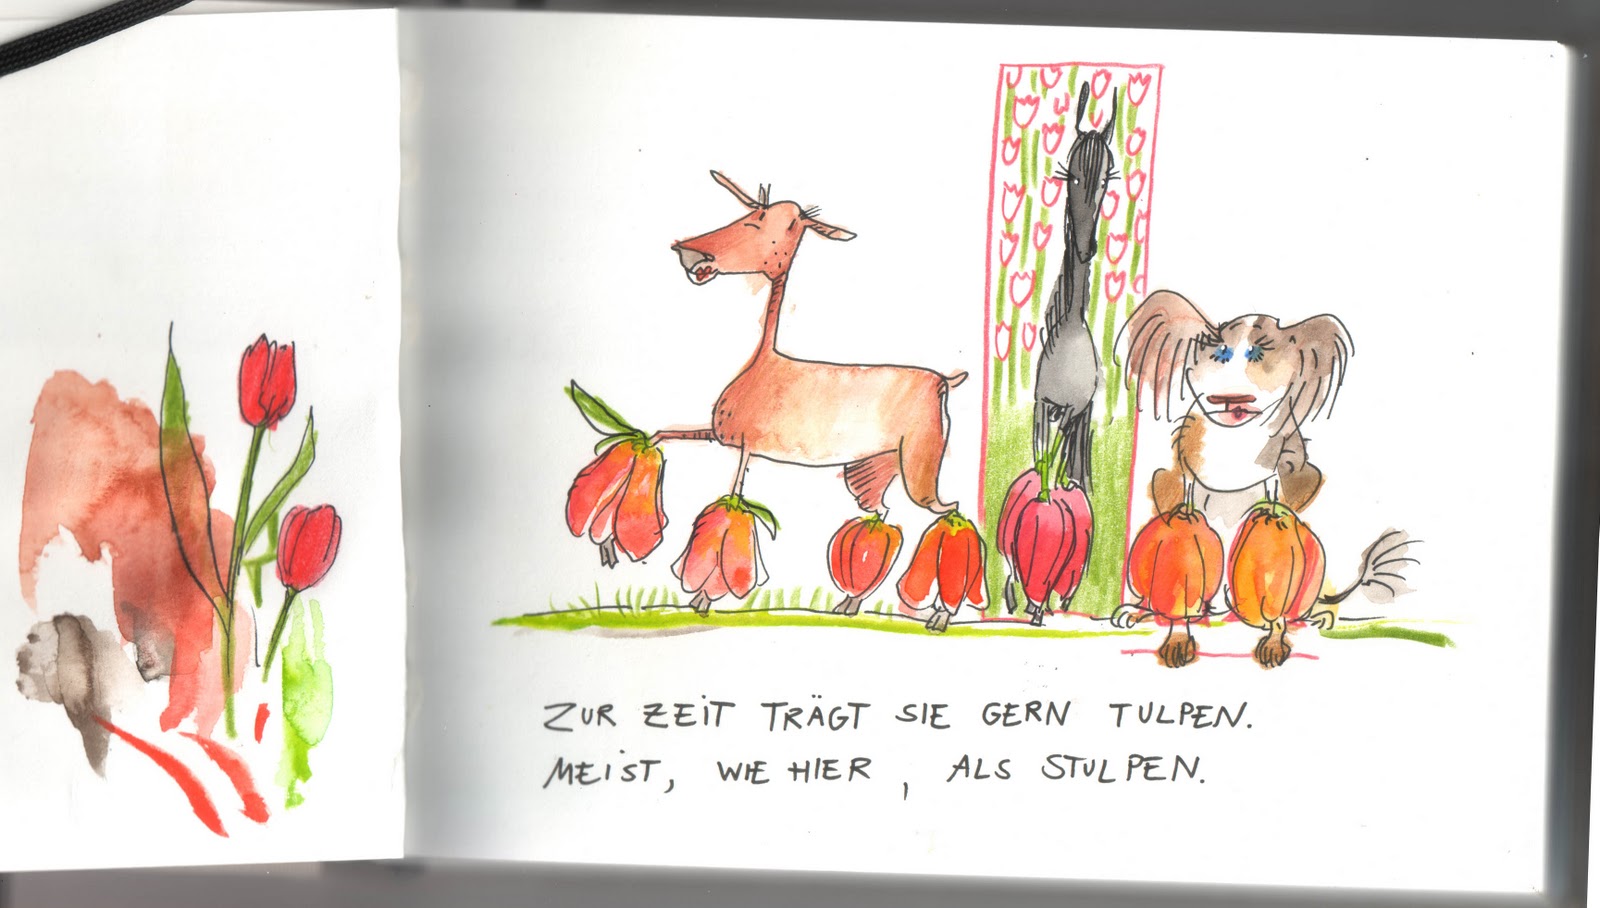 ZUR ZEIT TRÄGT SIE GERN TULPEN.
MEIST, WIE HIER, ALS STULPEN.